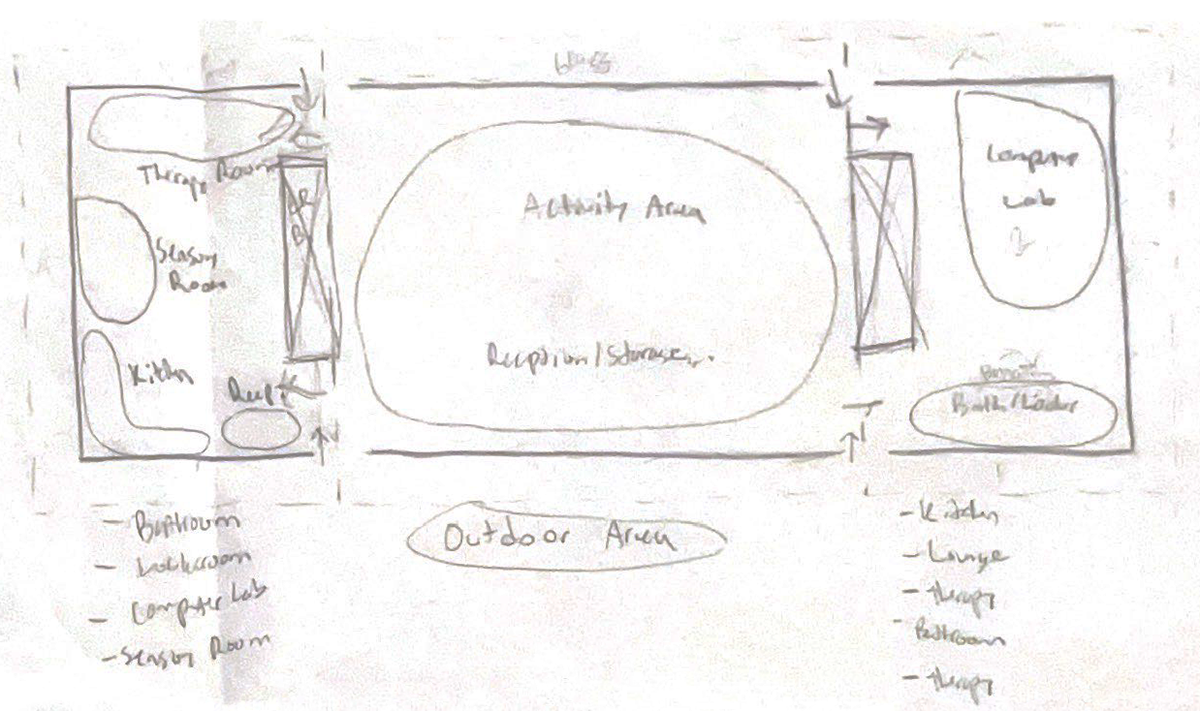 Therapy Room
Sensory
Room
Kitchen
Activity Area
Reception/Storage
Computer
Lab
Outdoor Area
- Bathroom
- Lockroom
- Computer Lab
- Sensory Room
- Kitchen
- Lounge
- therapy
- Bathroom
- therapy